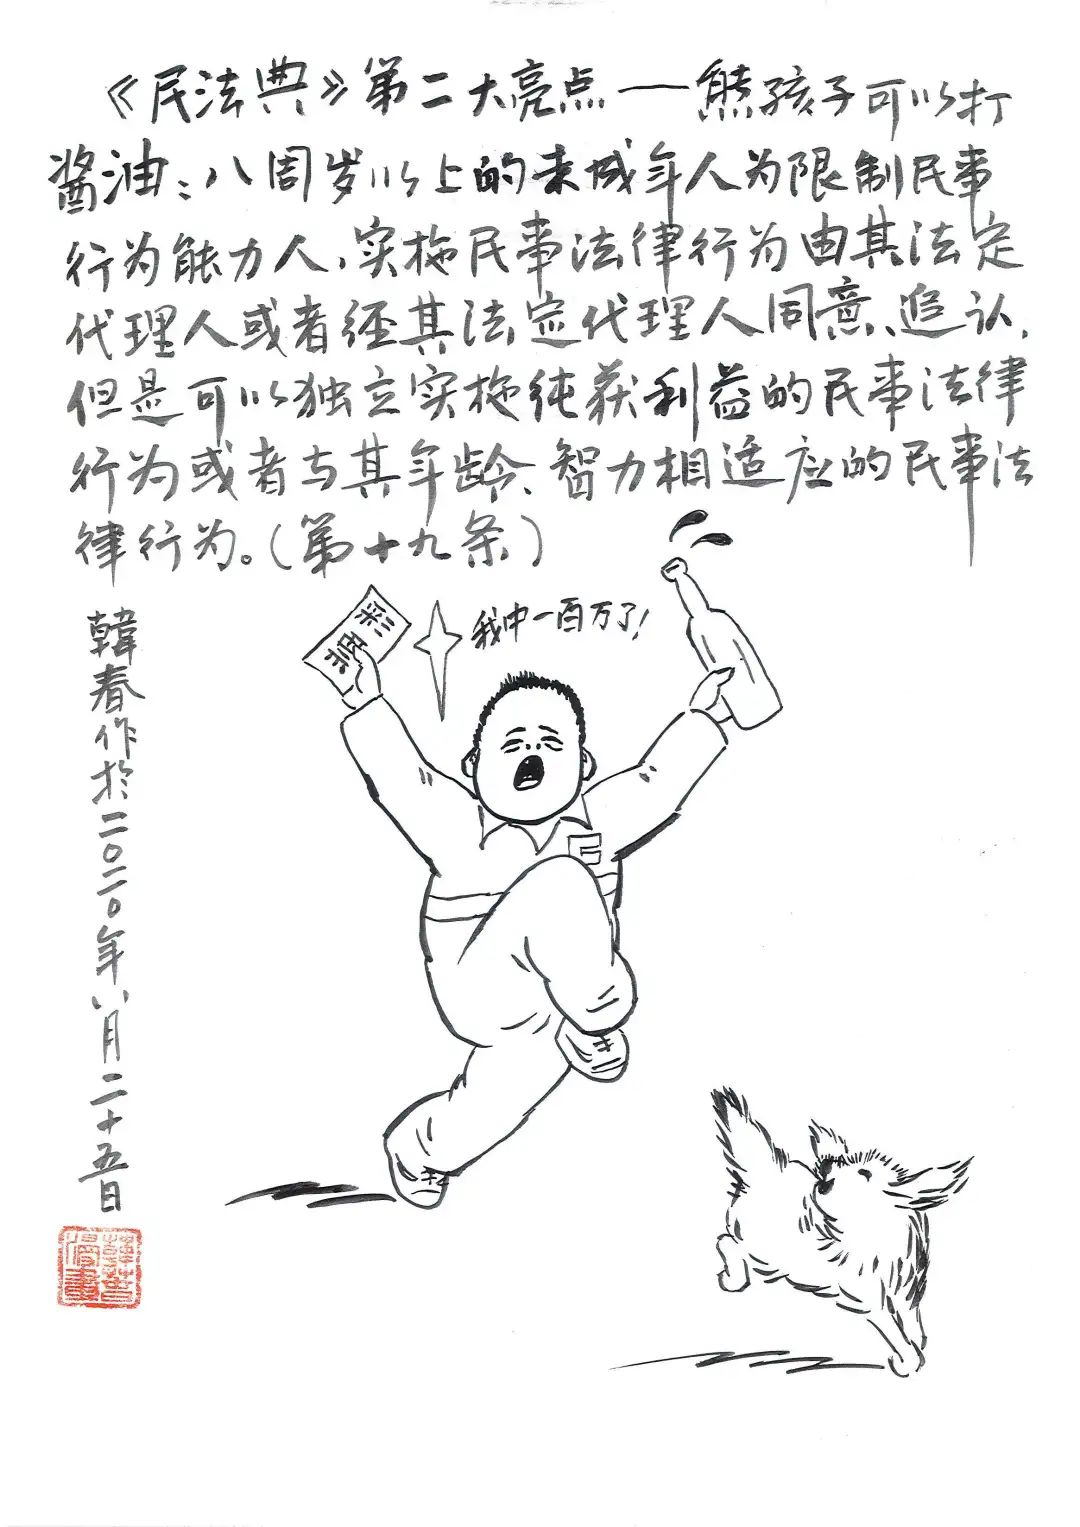 《民法典》第二大亮点——熊孩子可以打
酱油：八周岁以上的未成年人为限制民事
行为能力人，实施民事法律行为由其法定
代理人或者经其法定代理人同意、追认，
但是可以独立实施纯获利益的民事法律
行为或者与其年龄、智力相适应的民事法
律行为。（第十九条）
彩票
我中一百万了！
韓春作於二〇二〇年八月二十五日